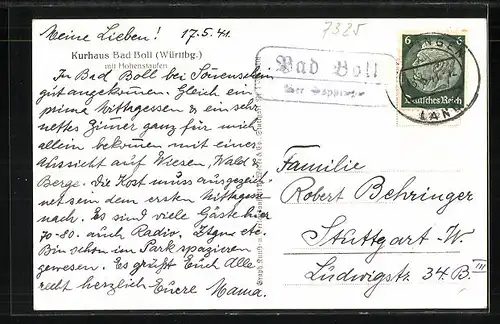 Meine Lieben! 17.5.41.
7325
Kurhaus Bad Boll (Württbg.)
mit Hohenstaufen
In Bad Boll bei Sonnenschein
gut angekommen. Gleich ein
prima Mittagessen & ein sehr
nettes Zimer ganz für mich
allein bekommen mit einer
Aussicht auf Wiesen, Wald &
Berge. Die Kost muss ausgezeich
net sein dem ersten Mittagessen
nach. Es sind viele Gäste hier
70-80. auch Radio, Ztgn etc.
Bin schon im Park spazieren
gewesen. Es grüßt Euch Alle
recht herzlich Eure Mama.
Bad Boll
über Göppingen
6
Deutsches Reich
LAND
Familie
Robert Behringer
Stuttgart-W.
Ludwigstr. 34.B III